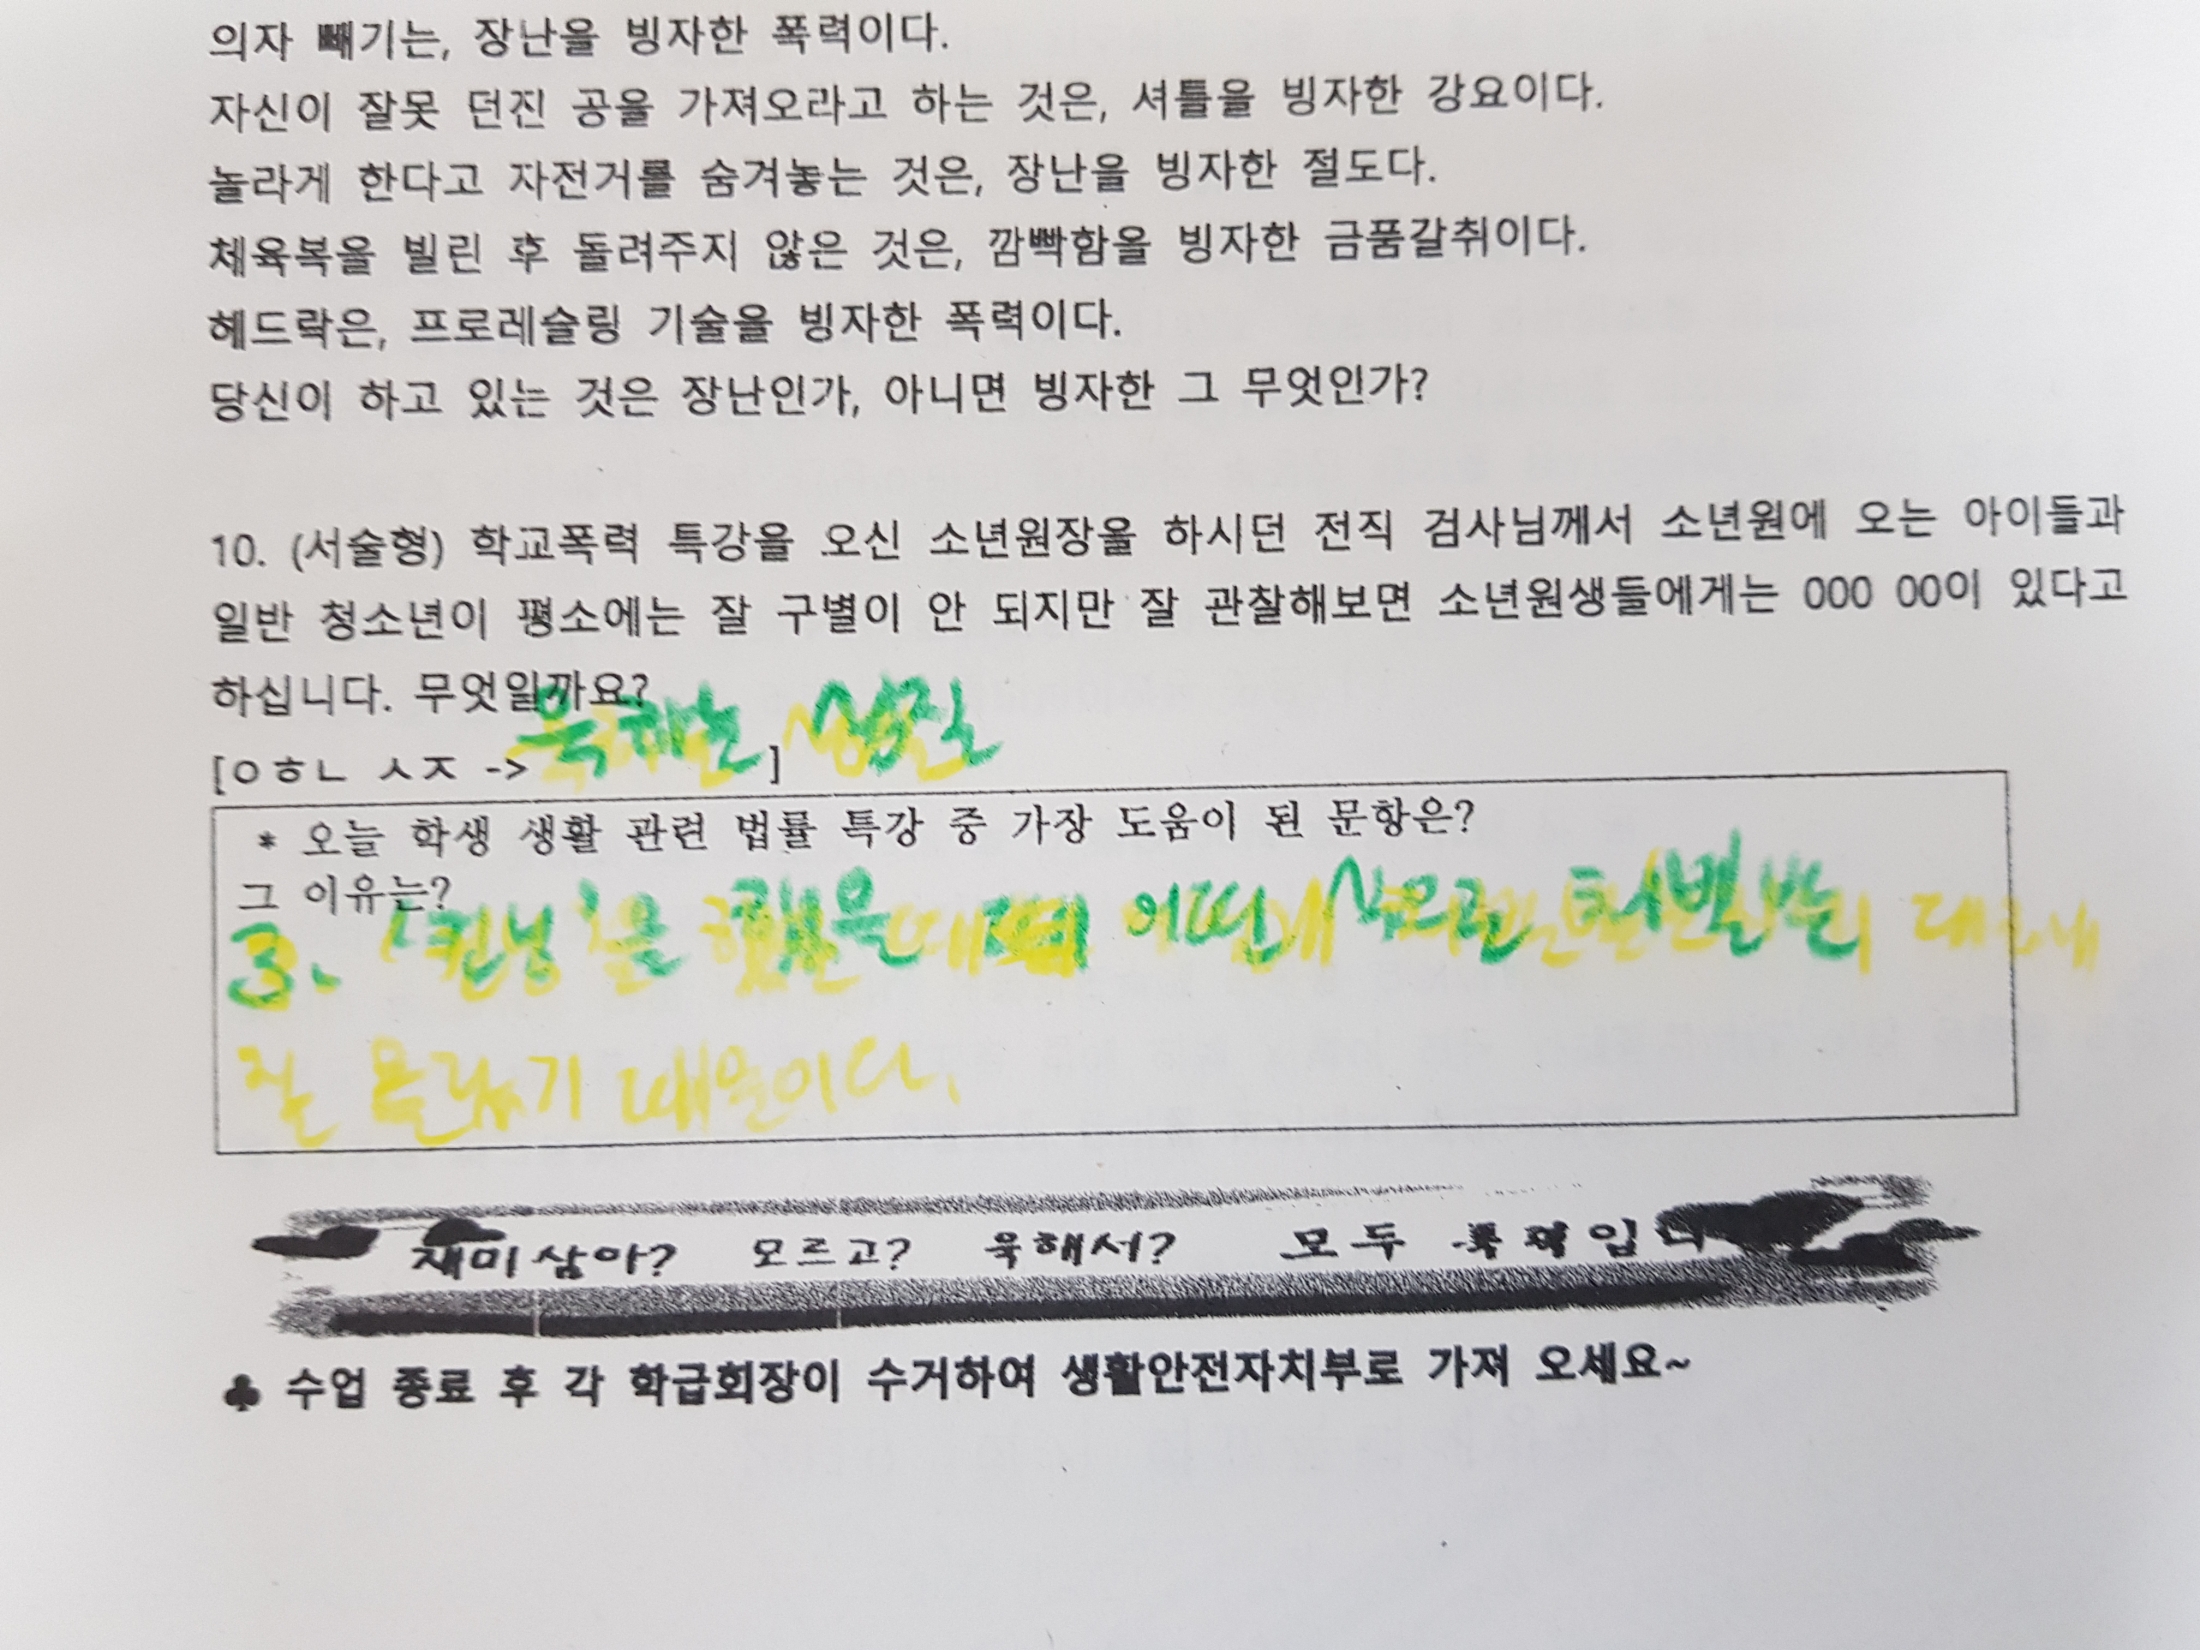 의자 빼기는, 장난을 빙자한 폭력이다.
자신이 잘못 던진 공을 가져오라고 하는 것은, 셔틀을 빙자한 강요이다.
놀라게 한다고 자전거를 숨겨놓는 것은, 장난을 빙자한 절도다.
체육복을 빌린 후 돌려주지 않은 것은, 깜빡함을 빙자한 금품갈취이다.
헤드락은, 프로레슬링 기술을 빙자한 폭력이다.
당신이 하고 있는 것은 장난인가, 아니면 빙자한 그 무엇인가?
10. (서술형) 학교폭력 특강을 오신 소년원장을 하시던 전직 검사님께서 소년원에 오는 아이들과
일반 청소년이 평소에는 잘 구별이 안 되지만 잘 관찰해보면 소년원생들에게는 OOO OO이 있다고
하십니다. 무엇일까요?
[ㅇㅎㄴ ㅅㅈ -> 욱하는 성질 ]
* 오늘 학생 생활 관련 법률 특강 중 가장 도움이 된 문항은?
그 이유는?
3. '컨닝'을 했을 때 어떤 식으로 처벌 받는지 대해
잘 몰랐기 때문이다.
재미삼아? 모르고? 욱해서? 모두 폭력입니
♣ 수업 종료 후 각 학급회장이 수거하여 생활안전자치부로 가져 오세요~